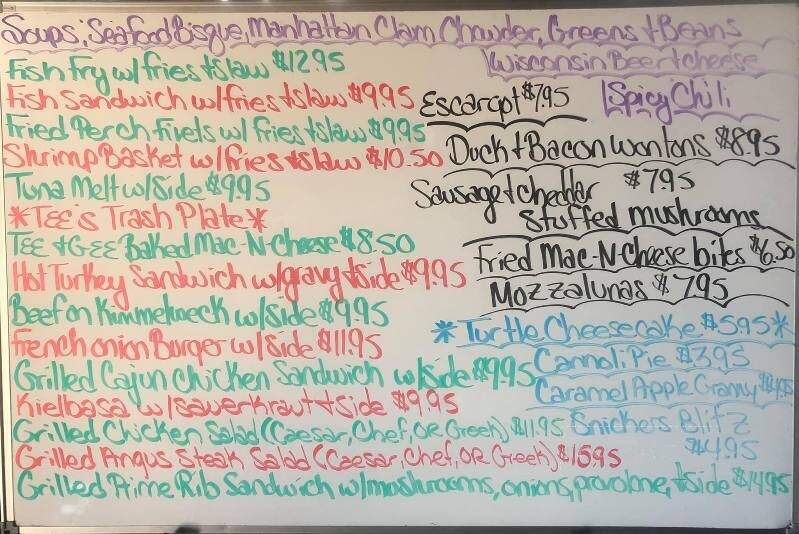 Soups: Seafood Bisque, Manhattan Clam Chowder, Greens & Beans
Wisconsin Beer & cheese
Spicy Chili
Fish Fry w/fries & slaw $12.95
Fish Sandwich w/fries & slaw $9.95
Fried Perch Fivels w/ fries & slaw $9.95
Shrimp Basket w/fries & slaw $10.50
Tuna Melt w/side $9.95
*TEE'S Trash Plate*
TEE & GEE Baked Mac-N-Cheese $8.50
Hot Turkey Sandwich w/gravy & side $9.95
Beef on Kimmelweck w/side $9.95
French onion Burger w/side $11.95
Grilled Cajun Chicken Sandwich w/side $9.95
Kielbasa w/sauerkraut & side $9.95
Grilled Chicken Salad (Caesar, Chef, OR Greek) $11.95
Grilled Angus Steak Salad (Caesar, Chef, OR Greek) $15.95
Grilled Prime Rib Sandwich w/mushrooms, onions, provolone, & side $14.95
Escargot $7.95
Duck & Bacon wontons $8.95
Sausage & cheddar $7.95
Stuffed mushrooms
Fried Mac-N-Cheese bites $6.50
Mozzalunas $7.95
*Turtle Cheesecake $5.95*
Cannoli Pie $3.95
Caramel Apple Granny $4.95
Snickers Blitz
$4.95